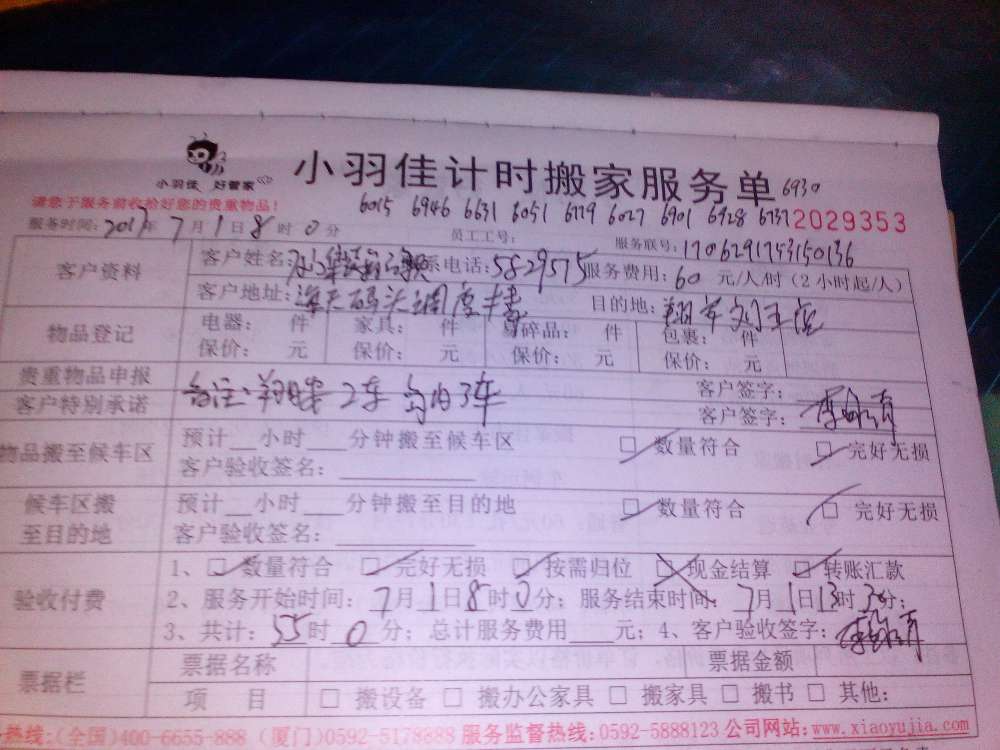 小羽佳 好管家
小羽佳计时搬家服务单 6930
请您于服务前收拾好您的贵重物品!
6015 6946 6631 6051 6779 6027 6901 6928 6737 2029353
服务时间: 2017年 7月1日8时0分 员工工号: 服务联号: 170629174315036
客户资料 客户姓名: 系电话: 5829575 服务费用: 60 元/人/时 (2小时起/人)
客户地址: 海天码头调度楼 目的地:
物品登记 电器: 件 家具: 件 易碎品: 件 包裹: 件
保价: 元 保价: 元 保价: 元 保价: 元
贵重物品申报 客户签字:
客户特别承诺 备注: 2车 3车 客户签字:
物品搬至候车区 预计__小时___分钟搬至候车区 □ 数量符合 □ 完好无损
客户验收签名:
候车区搬至目的地 预计__小时___分钟搬至目的地 □ 数量符合 □ 完好无损
客户验收签名:
验收付费 1、□ 数量符合 □ 完好无损 □ 按需归位 □ 现金结算 □ 转账汇款
2、服务开始时间: 7月1日8时0分; 服务结束时间: 7月1日13时30分;
3、共计: 55时 0分; 总计服务费用____元; 4、客户验收签字:
票据栏 票据名称 票据金额
项 目 □ 搬设备 □ 搬办公家具 □ 搬家具 □ 搬书 □ 其他:
热线: (全国)400-6655-888 (厦门)0592-5178888 服务监督热线: 0592-5888123 公司网站: www.xiaoyujia.com